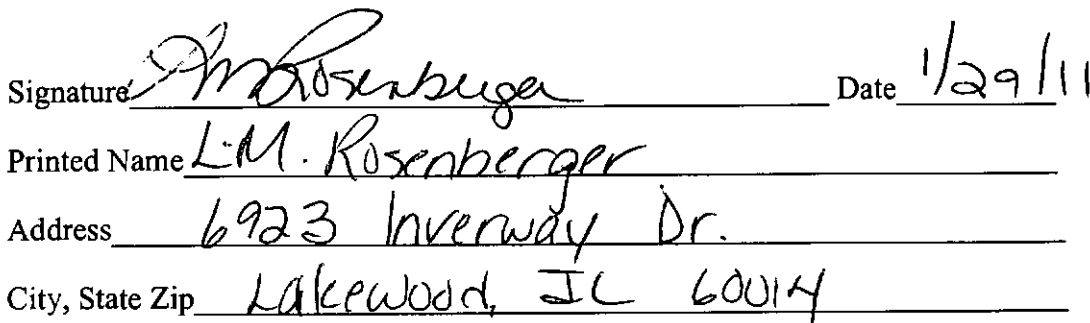 Signature LM Rosenberger Date 1/29/11
Printed Name L.M. Rosenberger
Address 6923 Inverway Dr.
City, State Zip Lakewood, IL 60014